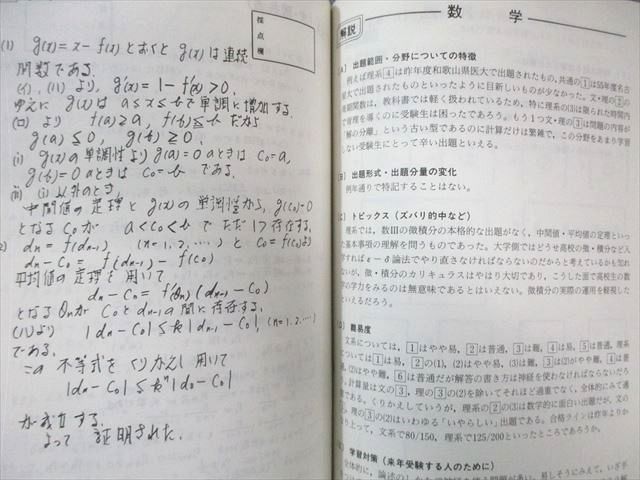 採点欄
(1) g(x)=x-f(x) とおくと g(x) は連続
関数である.
(イ), (ハ) より, g'(x)=1-f'(x)>0.
ゆえに g(x) は a≤x≤b で単調に増加する.
(ロ) より f(a)≥a, f(b)≤b だから
g(a)≤0, g(b)≥0.
(i) g(x) の単調性より g(a)=0 のときは C₀=a,
g(b)=0 のときは C₀=b である.
(ii) (i) 以外のとき,
中間値の定理と g(x) の単調性から, g(C₀)=0
となる C₀ が a<C₀<b でただ1つ存在する.
dn=f(dn-1) (n=1,2,…) と C₀=f(C₀) より
dn-C₀=f(dn-1)-f(C₀)
平均値の定理を用いて
dn-C₀=f'(θn)(dn-1-C₀)
となる θn が C₀ と dn-1 の間に存在する.
(ハ) より |dn-C₀|≤k|dn-1-C₀|, (n=1,2,…)
である.
この不等式をくりかえし用いて
|dn-C₀|≤kⁿ|d₀-C₀|
が成立する.
よって 証明された.
数 学
解説
出題範囲・分野についての特徴
例えば理系4は昨年度和歌山県医大で出題されたもの,共通の1は55年度名
大で出題されたものといったように目新しいものが少なかった。文・理の
関数は,教科書では軽く扱われているため,特に理系の3は限られた時間内
管理を導くのに受験生は困ったであろう。もう1つ文・理の3は問題の内容が
「解の分離」という古い型であるのに計算だけは繁雑で,この分野をあまり学習
しない受験生にとって辛い出題といえる。
出題形式・出題分量の変化
例年通りで特記することはない。
トピックス(ズバリ的中など)
理系では,数Ⅲの微積分の本格的な出題がなく,中間値・平均値の定理といっ
た基本事項の理解を問うものであった。大学側ではどうせ高校の微・積分など入
学すればε-δ論法でやり直さなければならないのだからと考えているかも知れ
ないが,微・積分のカリキュラスはやはり大切であり,こうした面で高校生の数
学の力をみるのは無意味であるとはいえない。微積分の実際の運用を軽視した
といえるだろう。
難易度
文系については,1はやや易,2は普通,3は難,4は易,5は普通。理系
については1は易,2の(1),(2)はやや易,(3)は難,3は(2)がやや難,4は普
(2)はやや難,6は普通だが解答の書き方は神経を使わなければならないだろ
う。計算量は文の3,理の3の(2)を除いてそれほど過重でなく,全体的にみて適
である。くりかえしていうが,理系の2の(3)は数学的に面白い出題だが,文の
理の3の(2)はいわゆる「いやらしい」出題である。合格ラインは昨年よりか
上って,文系で80/150,理系で125/200といったところであろうか。
学習対策(来年受験する人のために)